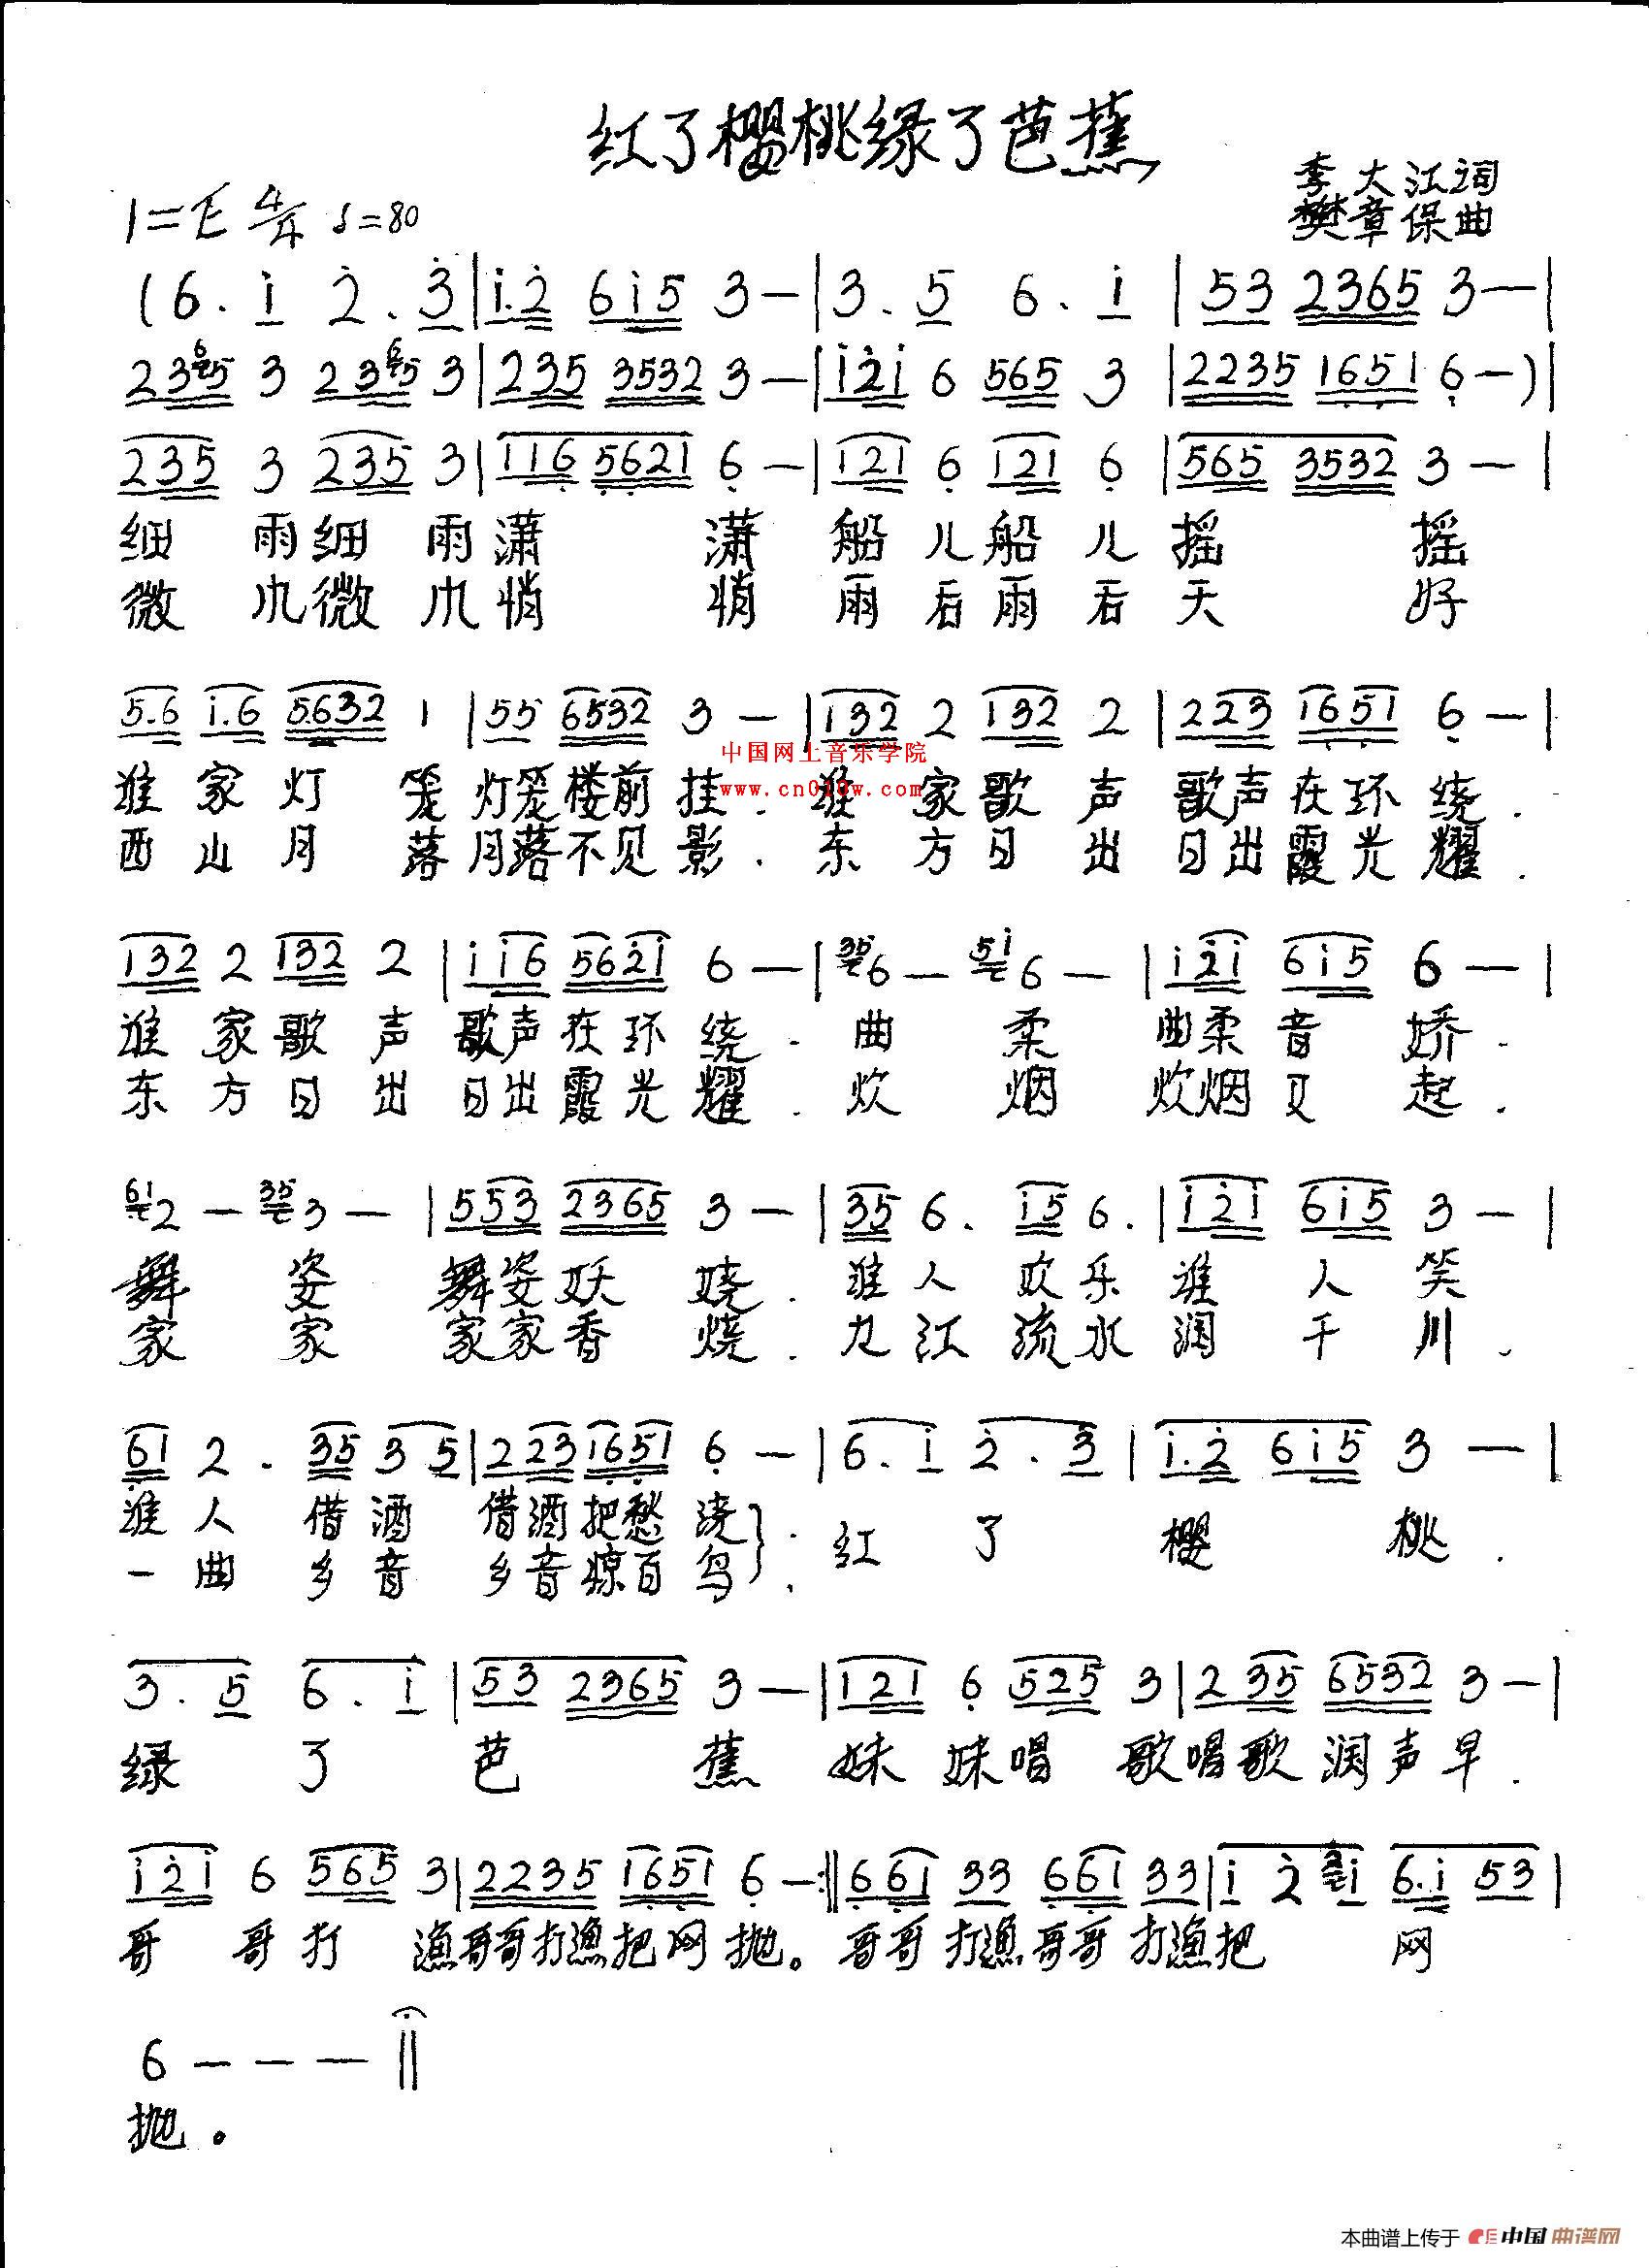 红了樱桃绿了芭蕉
李大江词
1=E 4/4 ♩=80
樊章保曲
(6. i 2. 3 | i.2 6i5 3 — | 3. 5 6. i | 53 2365 3 — |
235 3 235 3 | 235 3532 3 — | i2i 6 565 3 | 2235 1651 6 — ) |
235 3 235 3 | 116 5621 6 — | 121 6 121 6 | 565 3532 3 — |
细雨细雨潇潇船儿船儿摇摇
微微悄悄雨后雨后天好
5.6 i.6 5632 1 | 55 6532 3 — | 132 2 132 2 | 223 1651 6 — |
中国网上音乐学院
谁家灯笼灯笼楼前挂.谁家歌声歌声在环绕.
西山月落月落不见影.东方日出日出霞光耀.
132 2 132 2 | i i6 562i 6 — | 35 6 — 5i 6 — | i2i 6i5 6 — |
谁家歌声歌声在环绕.曲柔曲柔音娇.
东方日出日出霞光耀.炊烟炊烟又起.
61 2 — 35 3 — | 553 2365 3 — | 35 6. i5 6. | i2i 6i5 3 — |
舞姿舞姿妖娆.谁人欢乐谁人笑
家家家家香烧.九江流水润千川.
61 2. 35 35 | 223 1651 6 — | 6. i 2. 3 | i.2 6i5 3 — |
谁人借酒借酒把愁浇}.红了樱桃.
一曲乡音乡音惊百鸟
3. 5 6. i | 53 2365 3 — | 121 6 525 3 | 235 6532 3 — |
绿了芭蕉妹妹唱歌唱歌润声早.
i2i 6 565 3 | 2235 1651 6 — :‖ 661 33 661 33 | i 2 i 6.i 53 |
哥哥打渔哥哥打渔把网抛。哥哥打渔哥哥打渔把网
6 — — — ‖
抛。
本曲谱上传于 中国曲谱网